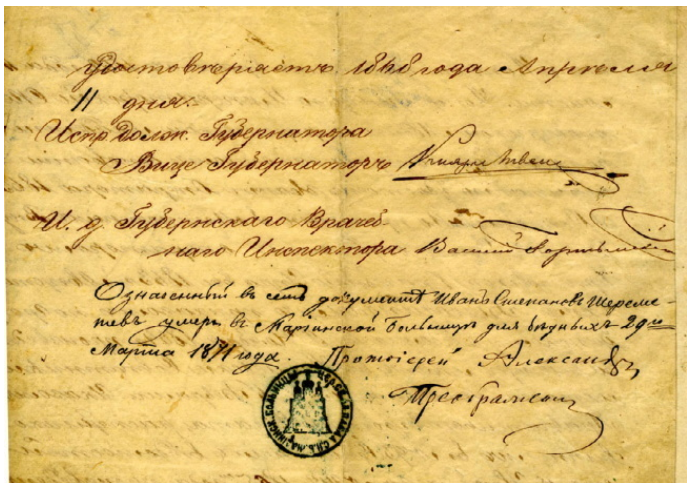 удостовѣряетъ 1868 года Апрѣля
11 дня.
Испр. долж. Губернатора
Вице Губернаторъ
И. д. Губернскаго Врачеб-
наго Инспектора Василій
Означенный въ семъ документѣ Иванъ Степановъ Шереме-
тевъ умеръ въ Маріинской Больницѣ для бѣдныхъ 29го
Марта 1871 года. Протоіерей Александръ